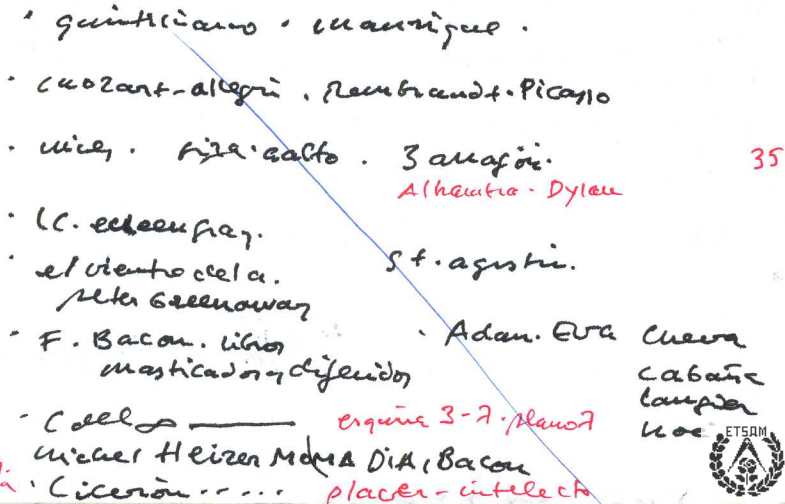 · quintiliano · manrique ·
· mozart-allegri · Rembrandt · Picasso
· mies · siza · aalto · Zaragoza
35
Alhambra - Dylan
· LC. eileen gray.
St. agustin.
· el vientre del a.
Peter Greenaway
· F. Bacon. libros
masticados y digeridos
· Adan. Eva Cueva
cabaña
Laugier
Noe
ETSAM
esquina 3-2. planos
michel Heizer MOMA DIA, Bacon
· Cicerón .....
placer - intelecto